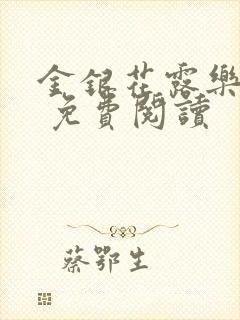 金銀花露樂
免費閱讀
蔡鄂生